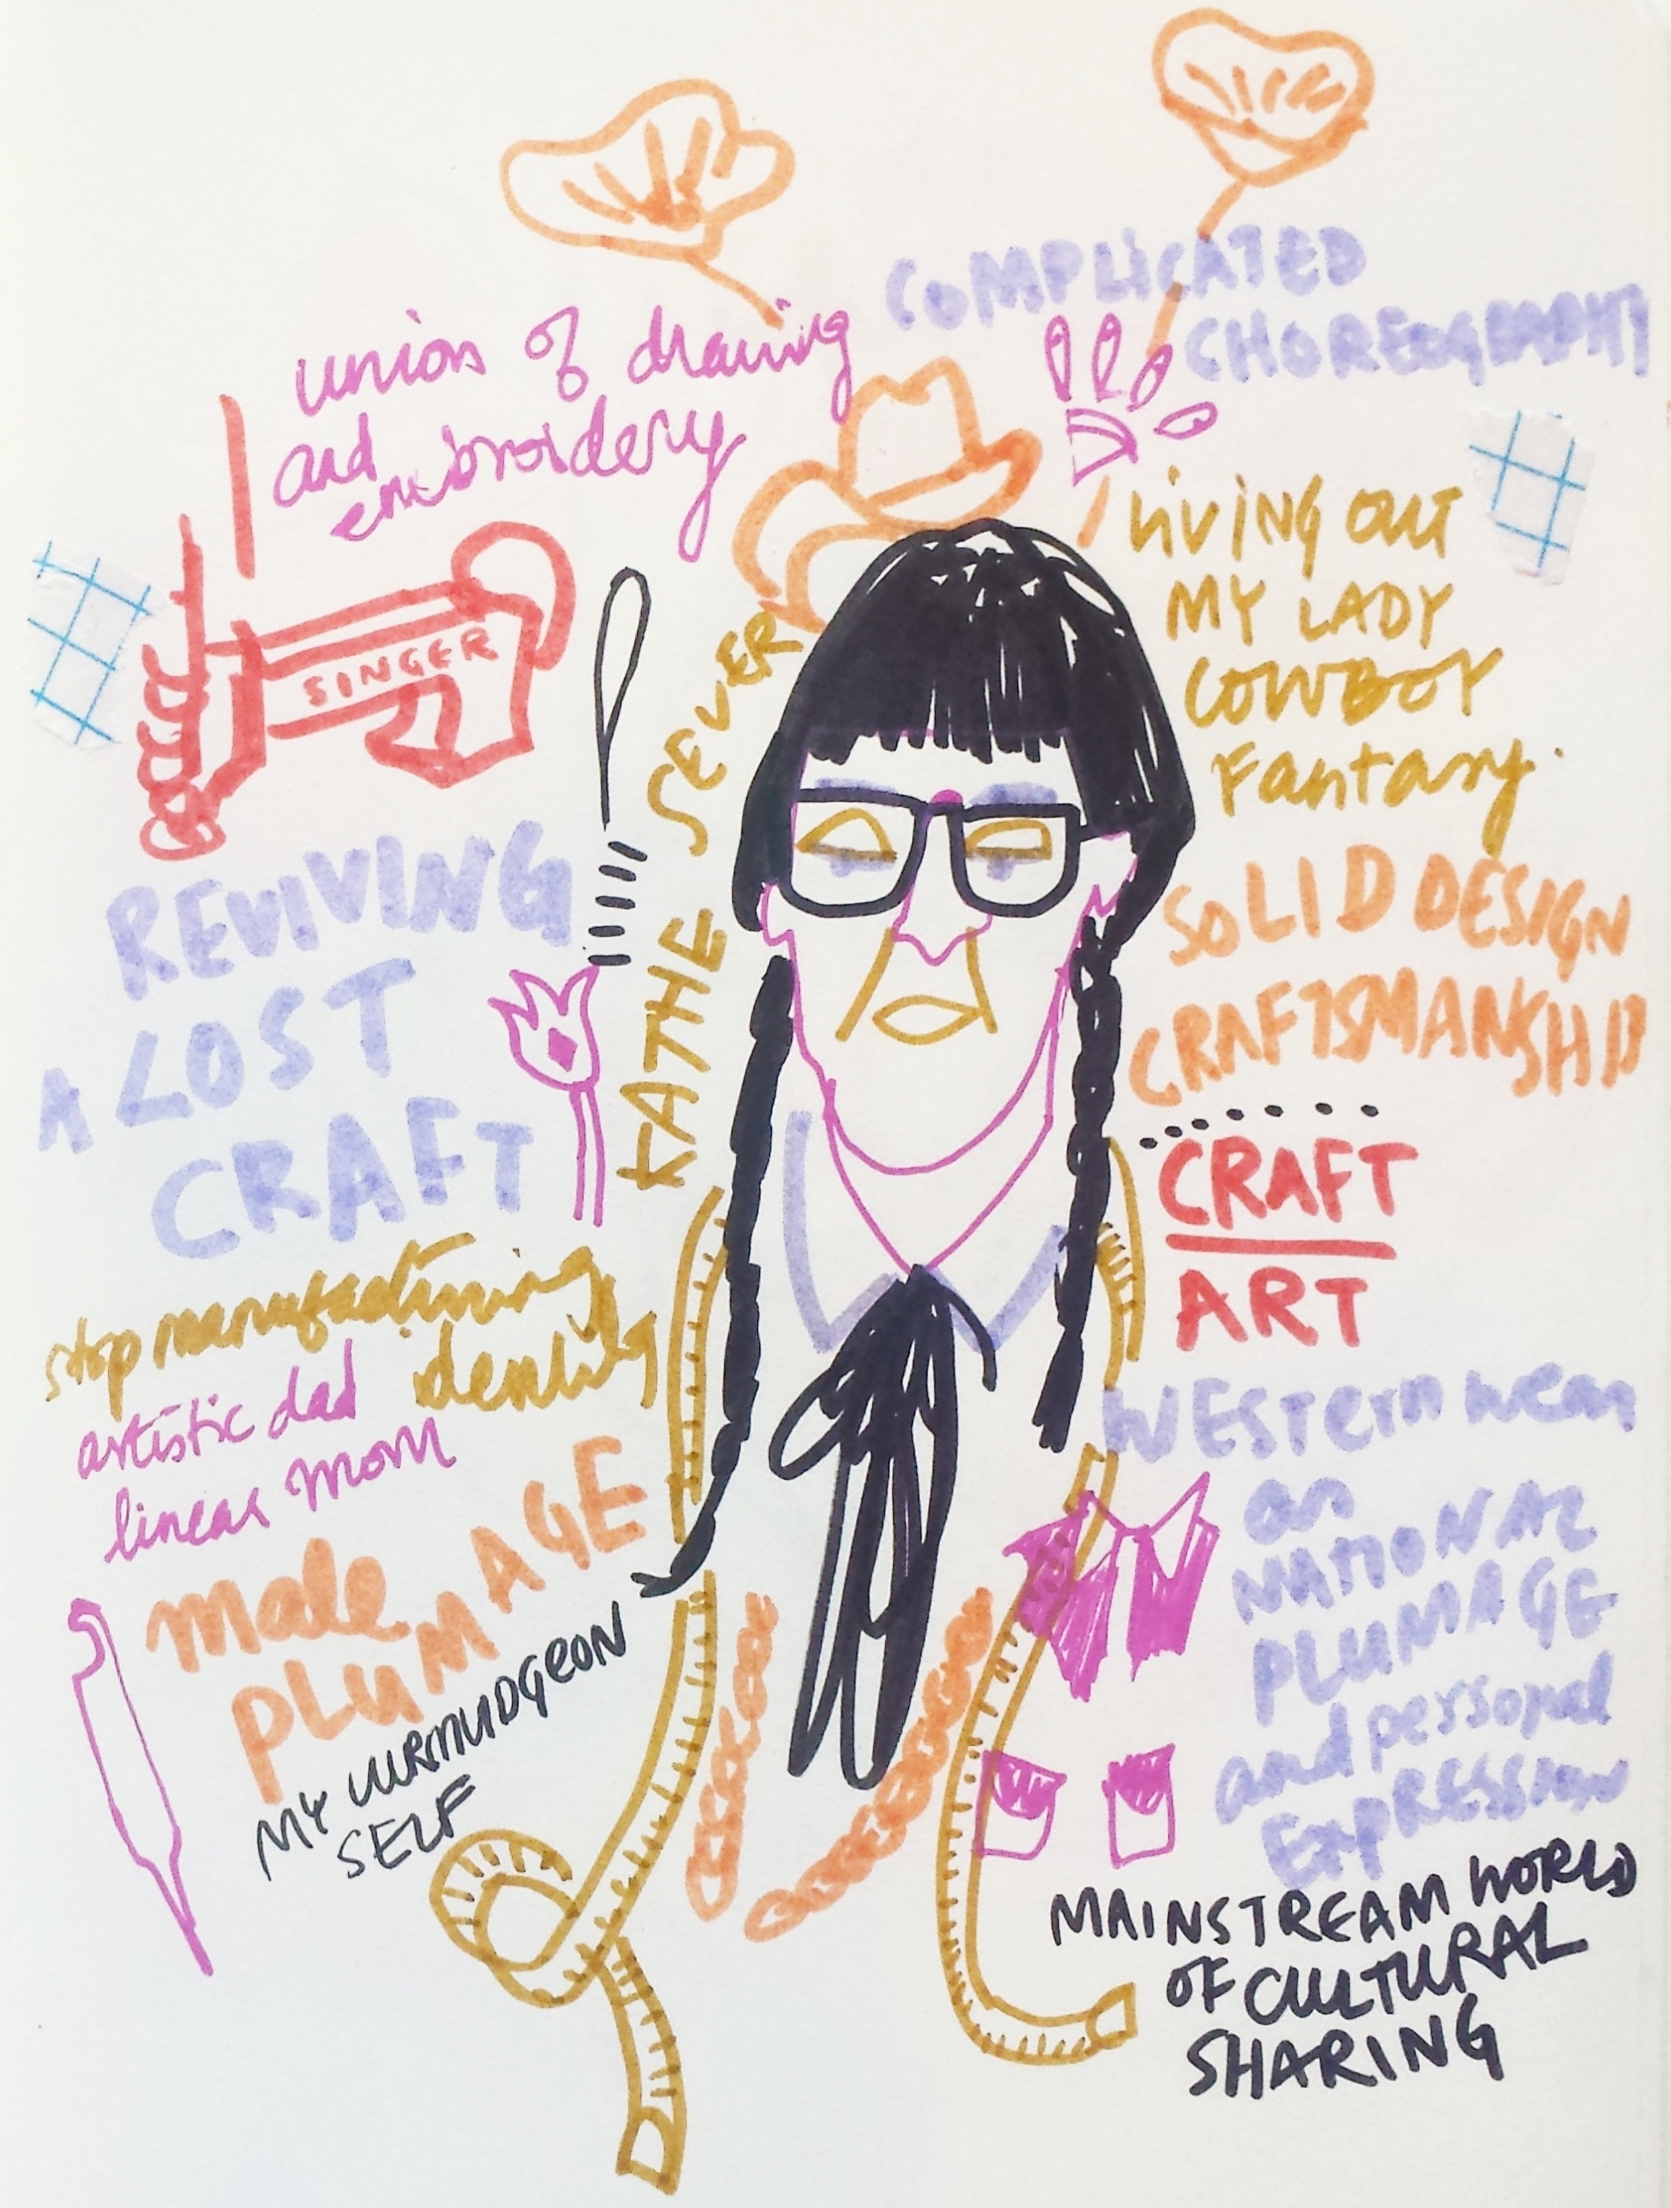 COMPLICATED
CHOREOGRAPHY
union of drawing
and
embroidery
LIVING OUT
MY LADY
COWBOY
Fantasy.
SINGER
KATHE SEVER
REVIVING
A LOST
CRAFT
SOLID DESIGN
CRAFTSMANSHIP
CRAFT
ART
stop manufacturing
identity
artistic dad
linear mom
male
PLUMAGE
MY CURMUDGEON
SELF
WESTERN wear
as
NATIONAL
PLUMAGE
and personal
EXPRESSION
MAINSTREAM WORLD
OF CULTURAL
SHARING